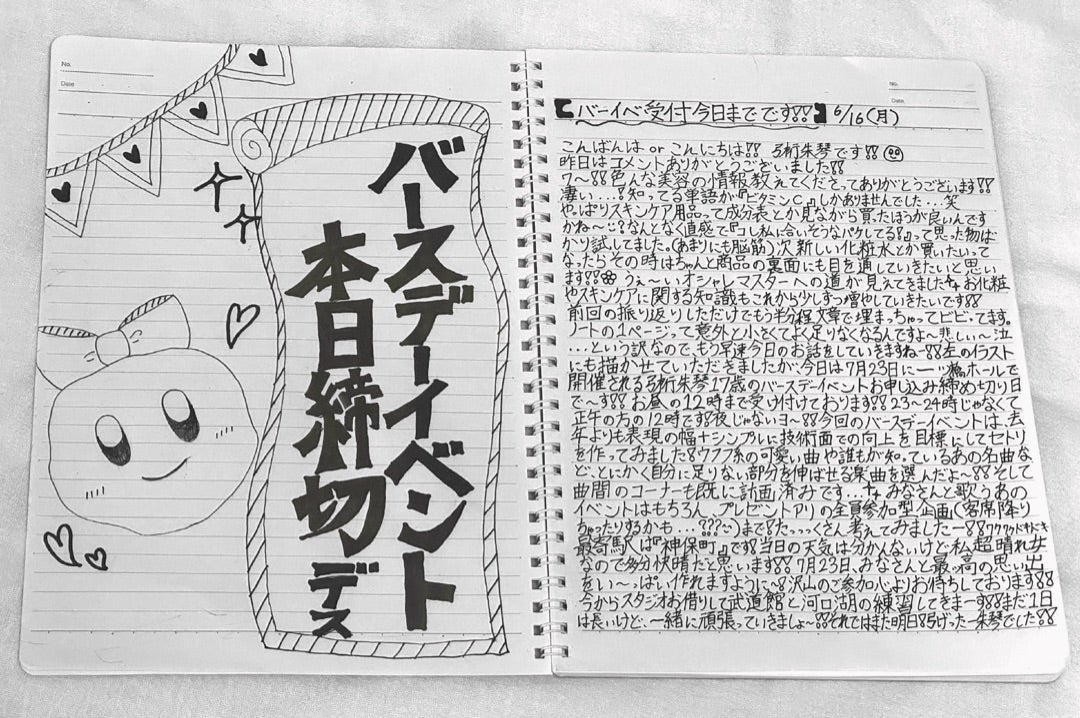 No.
Date
バースデーイベント
本日締切デス
No.
Date
【バーイベ受付今日までです!!】 6/16(月)
こんばんは or こんにちは!! 弓桁朱琴です!!
昨日はコメントありがとうございました!!
ワ〜!!色んな美容の情報教えてくださってありがとうございます!!
凄い...!知ってる単語が『ビタミンC』しかありませんでした...笑
やっぱりスキンケア用品って成分表とか見ながら買ったほうが良いんです
かね〜!?なんとなく直感で『コレ私に合いそうなパケしてる!』って思った物ば
かり試してました。(あまりにも脳筋)次新しい化粧水とか買いたいって
なったらその時はちゃんと商品の裏面にも目を通していきたいと思い
ます!!うぇ〜いオシャレマスターへの道が見えてきました お化粧
やスキンケアに関する知識もこれから少しずつ増やしていきたいです!!
前回の振り返りしただけでもう半分程文章で埋まっちゃってビビってます。
ノートの1ページって意外と小さくてよく足りなくなるんですよ〜悲しい〜泣
...という訳なので、もう早速今日のお話をしていきますね〜!!左のイラスト
にも描かせていただきましたが、今日は7月23日に一ツ橋ホールで
開催される弓桁朱琴17歳のバースデーイベントお申し込み締め切り日
で〜す!!お昼の12時まで受け付けております!!23〜24時じゃなくて
正午の方の12時です!夜じゃないヨ〜!!今回のバースデーイベントは、去
年よりも表現の幅+シンプルに技術面での向上を目標にしてセトリ
を作ってみました!ウフフ系の可愛い曲や誰もが知っているあの名曲な
ど、とにかく自分に足りない部分を伸ばせる楽曲を選んだよ〜!!そして
曲間のコーナーも既に計画済みです... みなさんと歌うあの
イベントはもちろん、プレゼントアリの全員参加型企画(客席降り
ちゃったりするかも...???)まで!たっっっくさん考えてみましたー!!ワクワクッドキドキ
最寄駅は『神保町』です!当日の天気は分かんないけど私超晴れ女
なので多分快晴だと思います!!7月23日、みなさんと最っ高の思い出
をい〜っぱい作れますように〜!沢山のご参加心よりお待ちしております!!
今からスタジオお借りして武道館と河口湖の練習してきまーす!!まだ1日
は長いけど、一緒に頑張っていきましょ〜!!それではまた明日!らげったー朱琴でした!!